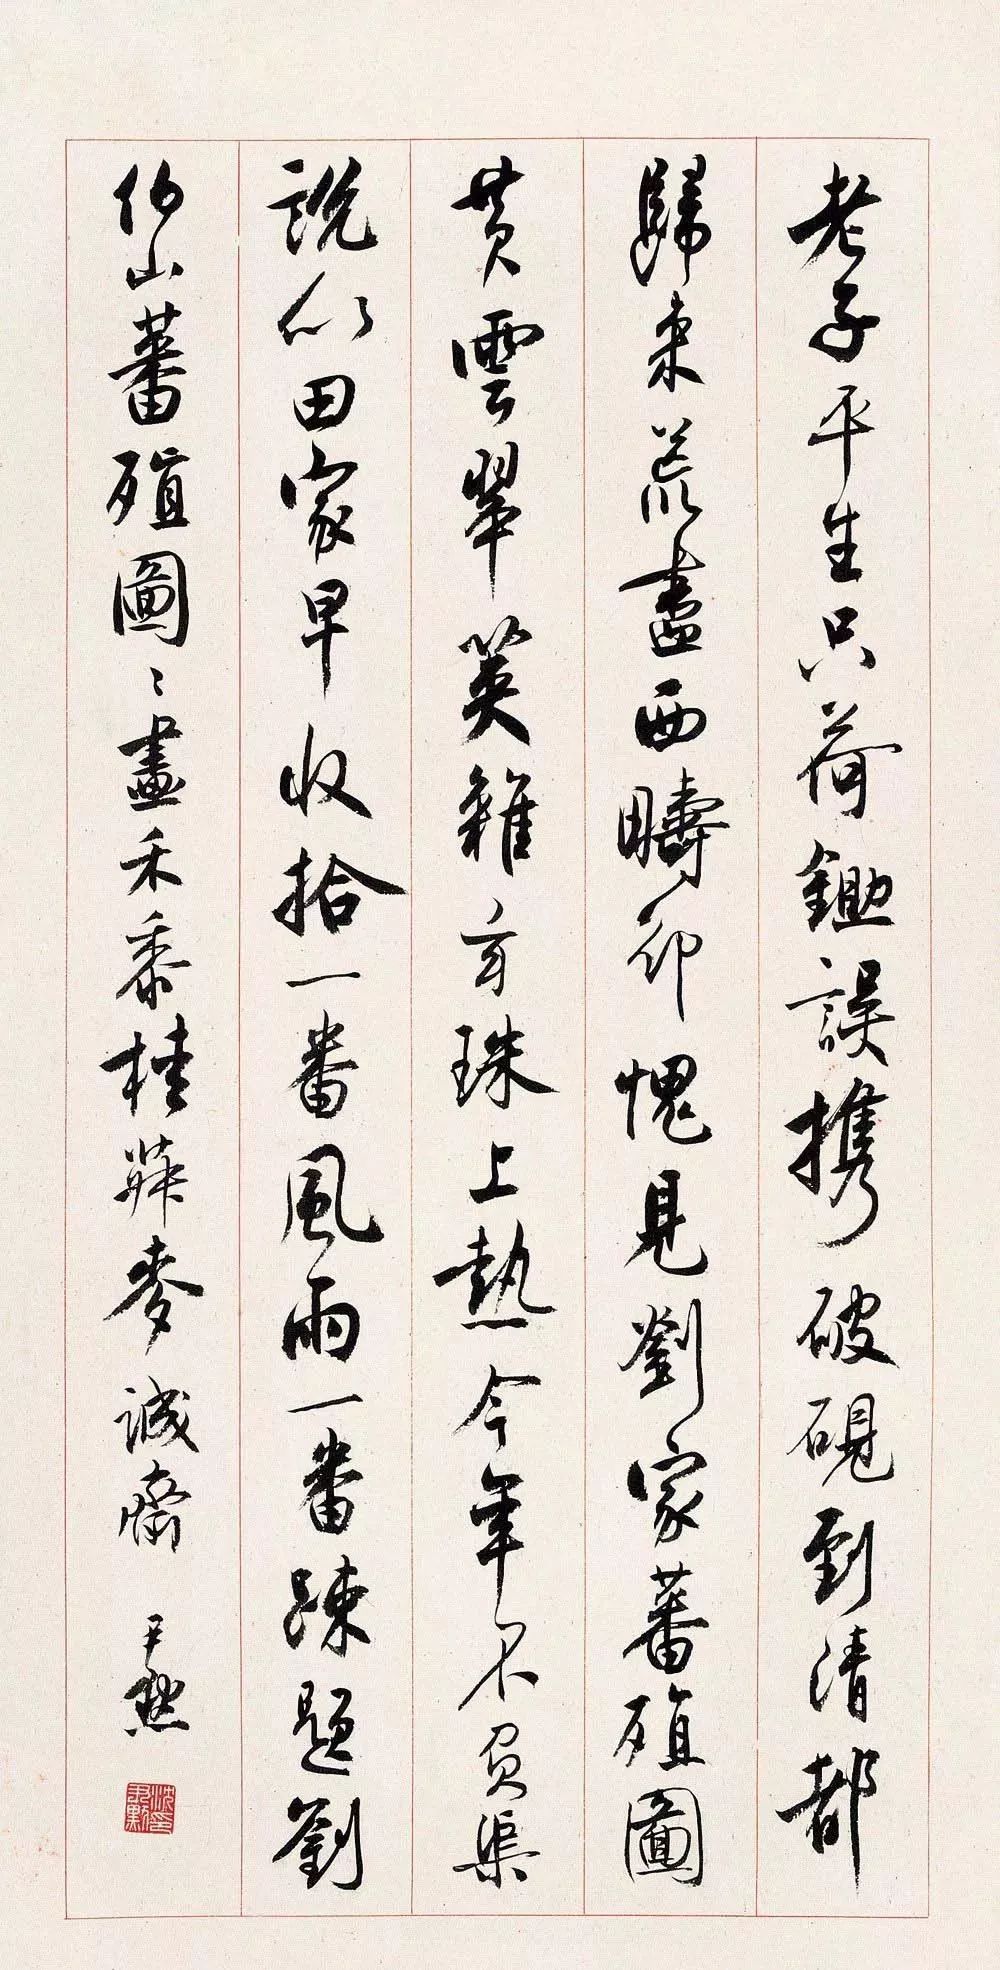 老子平生只荷鋤誤携破硯到清都
歸来荒盡西疇却愧見劉家蕃殖圖
黄雲翠莢雜玄珠上熟今年不負渠
說似田家早收拾一番風雨一番踈題劉
伯山蕃殖圖〻畫禾黍麥誠齋 尹默
沈尹默印